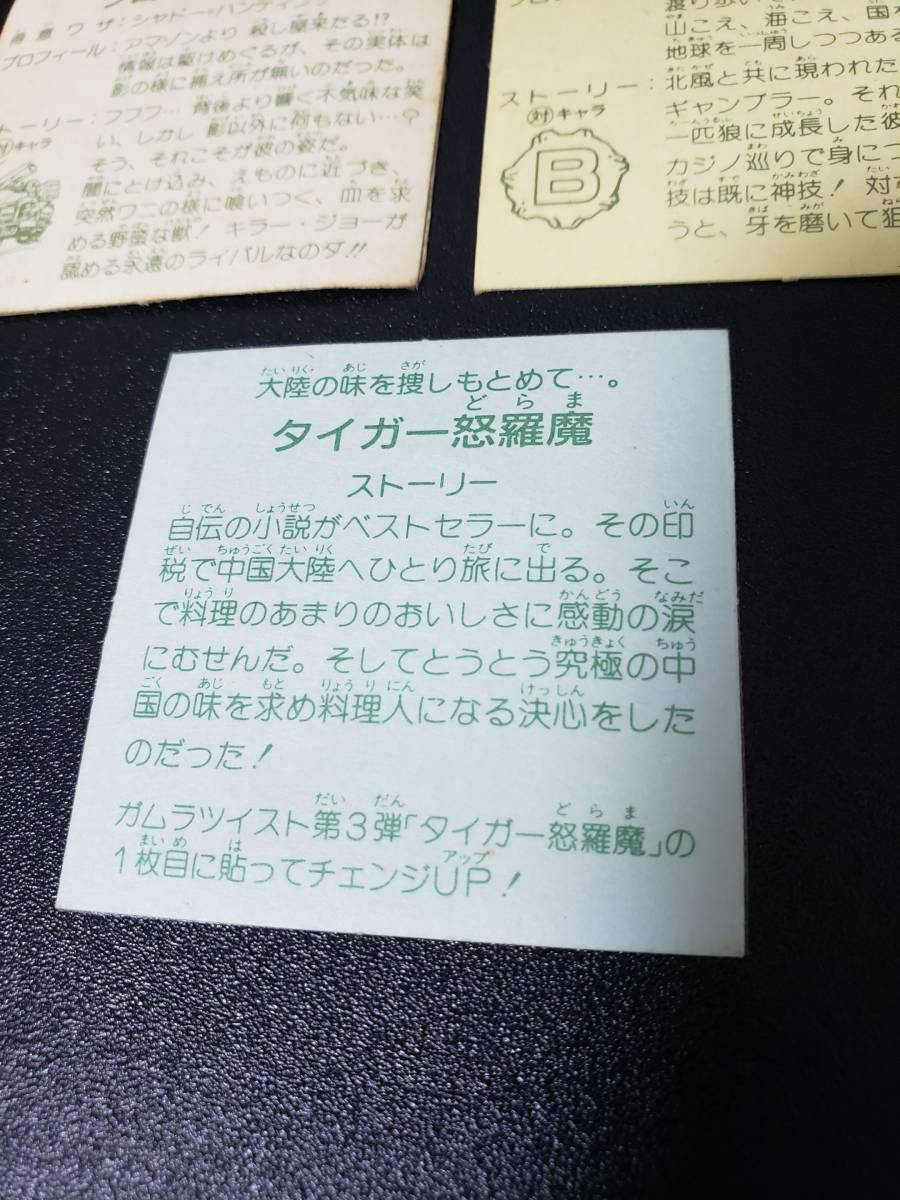 得意ワザ：シャドー・ハンティング
プロフィール：アマゾンより殺し屋来たる!?
情報は駆けめぐるが、その実体は
影の様に捕え所が無いのだった。
ストーリー：フフフ…背後より響く不気味な笑
い、しかし影以外に何もない…?
対キャラ
そう、それこそが彼の姿だ。
闇にとけ込み、えものに近づき、
突然ワニの様に喰いつく、血を求
める野蛮な獣！キラー・ジョーが
認める永遠のライバルなのダ!!
山こえ、海こえ、国を
地球を一周しつつある
ストーリー：北風と共に現われた
対キャラ
ギャンブラー。それ
一匹狼に成長した彼
カジノ巡りで身につ
技は既に神技！対す
うと、牙を磨いて狙
B
大陸の味を捜しもとめて…。
たいりく あじ さが
どらま
タイガー怒羅魔
ストーリー
じでん しょうせつ いん
自伝の小説がベストセラーに。その印
ぜい ちゅうごくたいりく たび で
税で中国大陸へひとり旅に出る。そこ
りょうり かんどう なみだ
で料理のあまりのおいしさに感動の涙
きゅうきょく ちゅう
にむせんだ。そしてとうとう究極の中
ごく あじ もと りょうりにん けっしん
国の味を求め料理人になる決心をした
のだった！
だい だん どらま
ガムラツイスト第3弾「タイガー怒羅魔」の
まいめ は アップ
1枚目に貼ってチェンジUP！